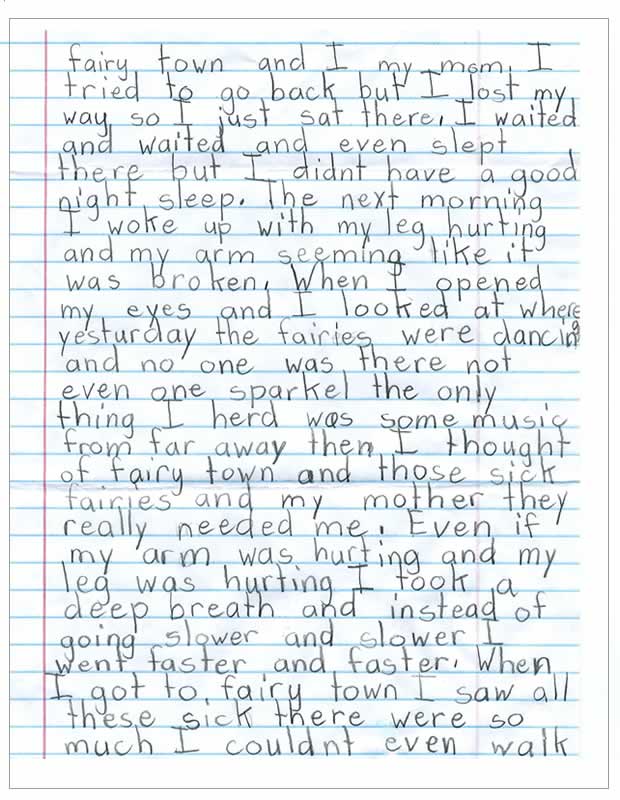 fairy town and I my mom. I
tried to go back but I lost my
way so I just sat there. I waited
and waited and even slept
there but I didnt have a good
night sleep. The next morning
I woke up with my leg hurting
and my arm seeming like it
was broken. When I opened
my eyes and I looked at where
yesturday the fairies were dancing
and no one was there not
even one sparkel the only
thing I herd was some music
from far away then I thought
of fairy town and those sick
fairies and my mother they
really needed me. Even if
my arm was hurting and my
leg was hurting I took a
deep breath and instead of
going slower and slower I
went faster and faster. When
I got to fairy town I saw all
these sick there were so
much I couldnt even walk